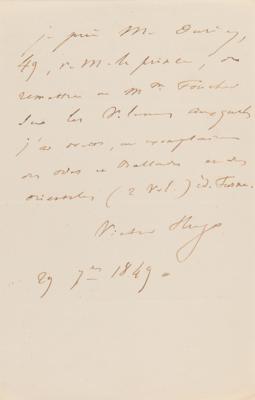 je prie M. Durieu,
49, r. M. le prince, de
remettre à M. P. Foucher
sur les Volumes auxquels
j'ai droit, un exemplaire
des odes et Ballades et des
orientales (2 vol.) éd. Furne.
Victor Hugo
29 7bre 1849.